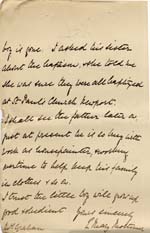 boy is gone. I asked his sister
about the baptism, & she told me
she was sure they were all baptized
at St Pauls Church Newport.
I shall see the father later on,
just at present he is so busy with
work as housepainter, working
overtime to help keep his family
in clothes & so on.
I trust the little boy will prove
good & obedient Yours sincerely